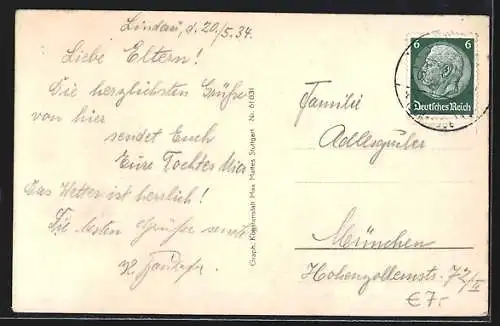 Lindau, d. 20./5.34.
Liebe Eltern!
Die herzlichsten Grüße
von hier
sendet Euch
Eure Tochter
Das Wetter ist herrlich!
Die besten Grüße
Graph. Kunstanstalt Max Mattes Stuttgart Nr. 61631
6 6
Deutsches Reich
Familie
München
Hohenzollernstr. 72/II
€ 7.-